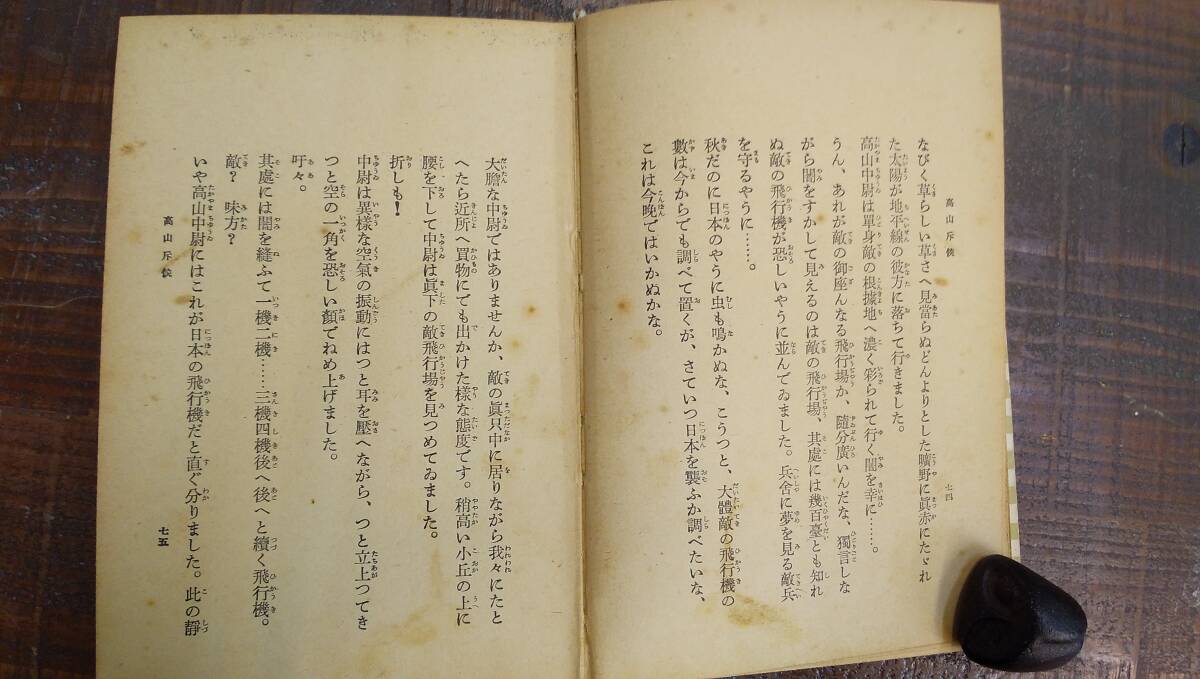 高山斥候
七四
なびく草らしい草さへ見當らぬどんよりとした曠野に眞赤にたゞれ
た太陽が地平線の彼方に落ちて行きました。
高山中尉は單身敵の根據地へ濃く彩られて行く闇を幸に……。
うん、あれが敵の御座んなる飛行場か、隨分廣いんだな、獨言しな
がら闇をすかして見えるのは敵の飛行場、其處には幾百臺とも知れ
ぬ敵の飛行機が恐しいやうに並んでゐました。兵舍に夢を見る敵兵
を守るやうに……。
秋だのに日本のやうに虫も鳴かぬな、こうつと、大體敵の飛行機の
數は今からでも調べて置くが、さていつ日本を襲ふか調べたいな、
これは今晩ではいかぬかな。
大膽な中尉ではありませんか、敵の眞只中に居りながら我々にたと
へたら近所へ買物にでも出かけた樣な態度です。稍高い小丘の上に
腰を下して中尉は眞下の敵飛行場を見つめてゐました。
折しも！
中尉は異樣な空氣の振動にはつと耳を壓へながら、つと立上つてき
つと空の一角を恐しい顏でねめ上げました。
吁々。
其處には闇を縫ふて一機二機……三機四機後へ後へと續く飛行機。
敵？　味方？
いや高山中尉にはこれが日本の飛行機だと直ぐ分りました。此の靜
高山斥候
七五